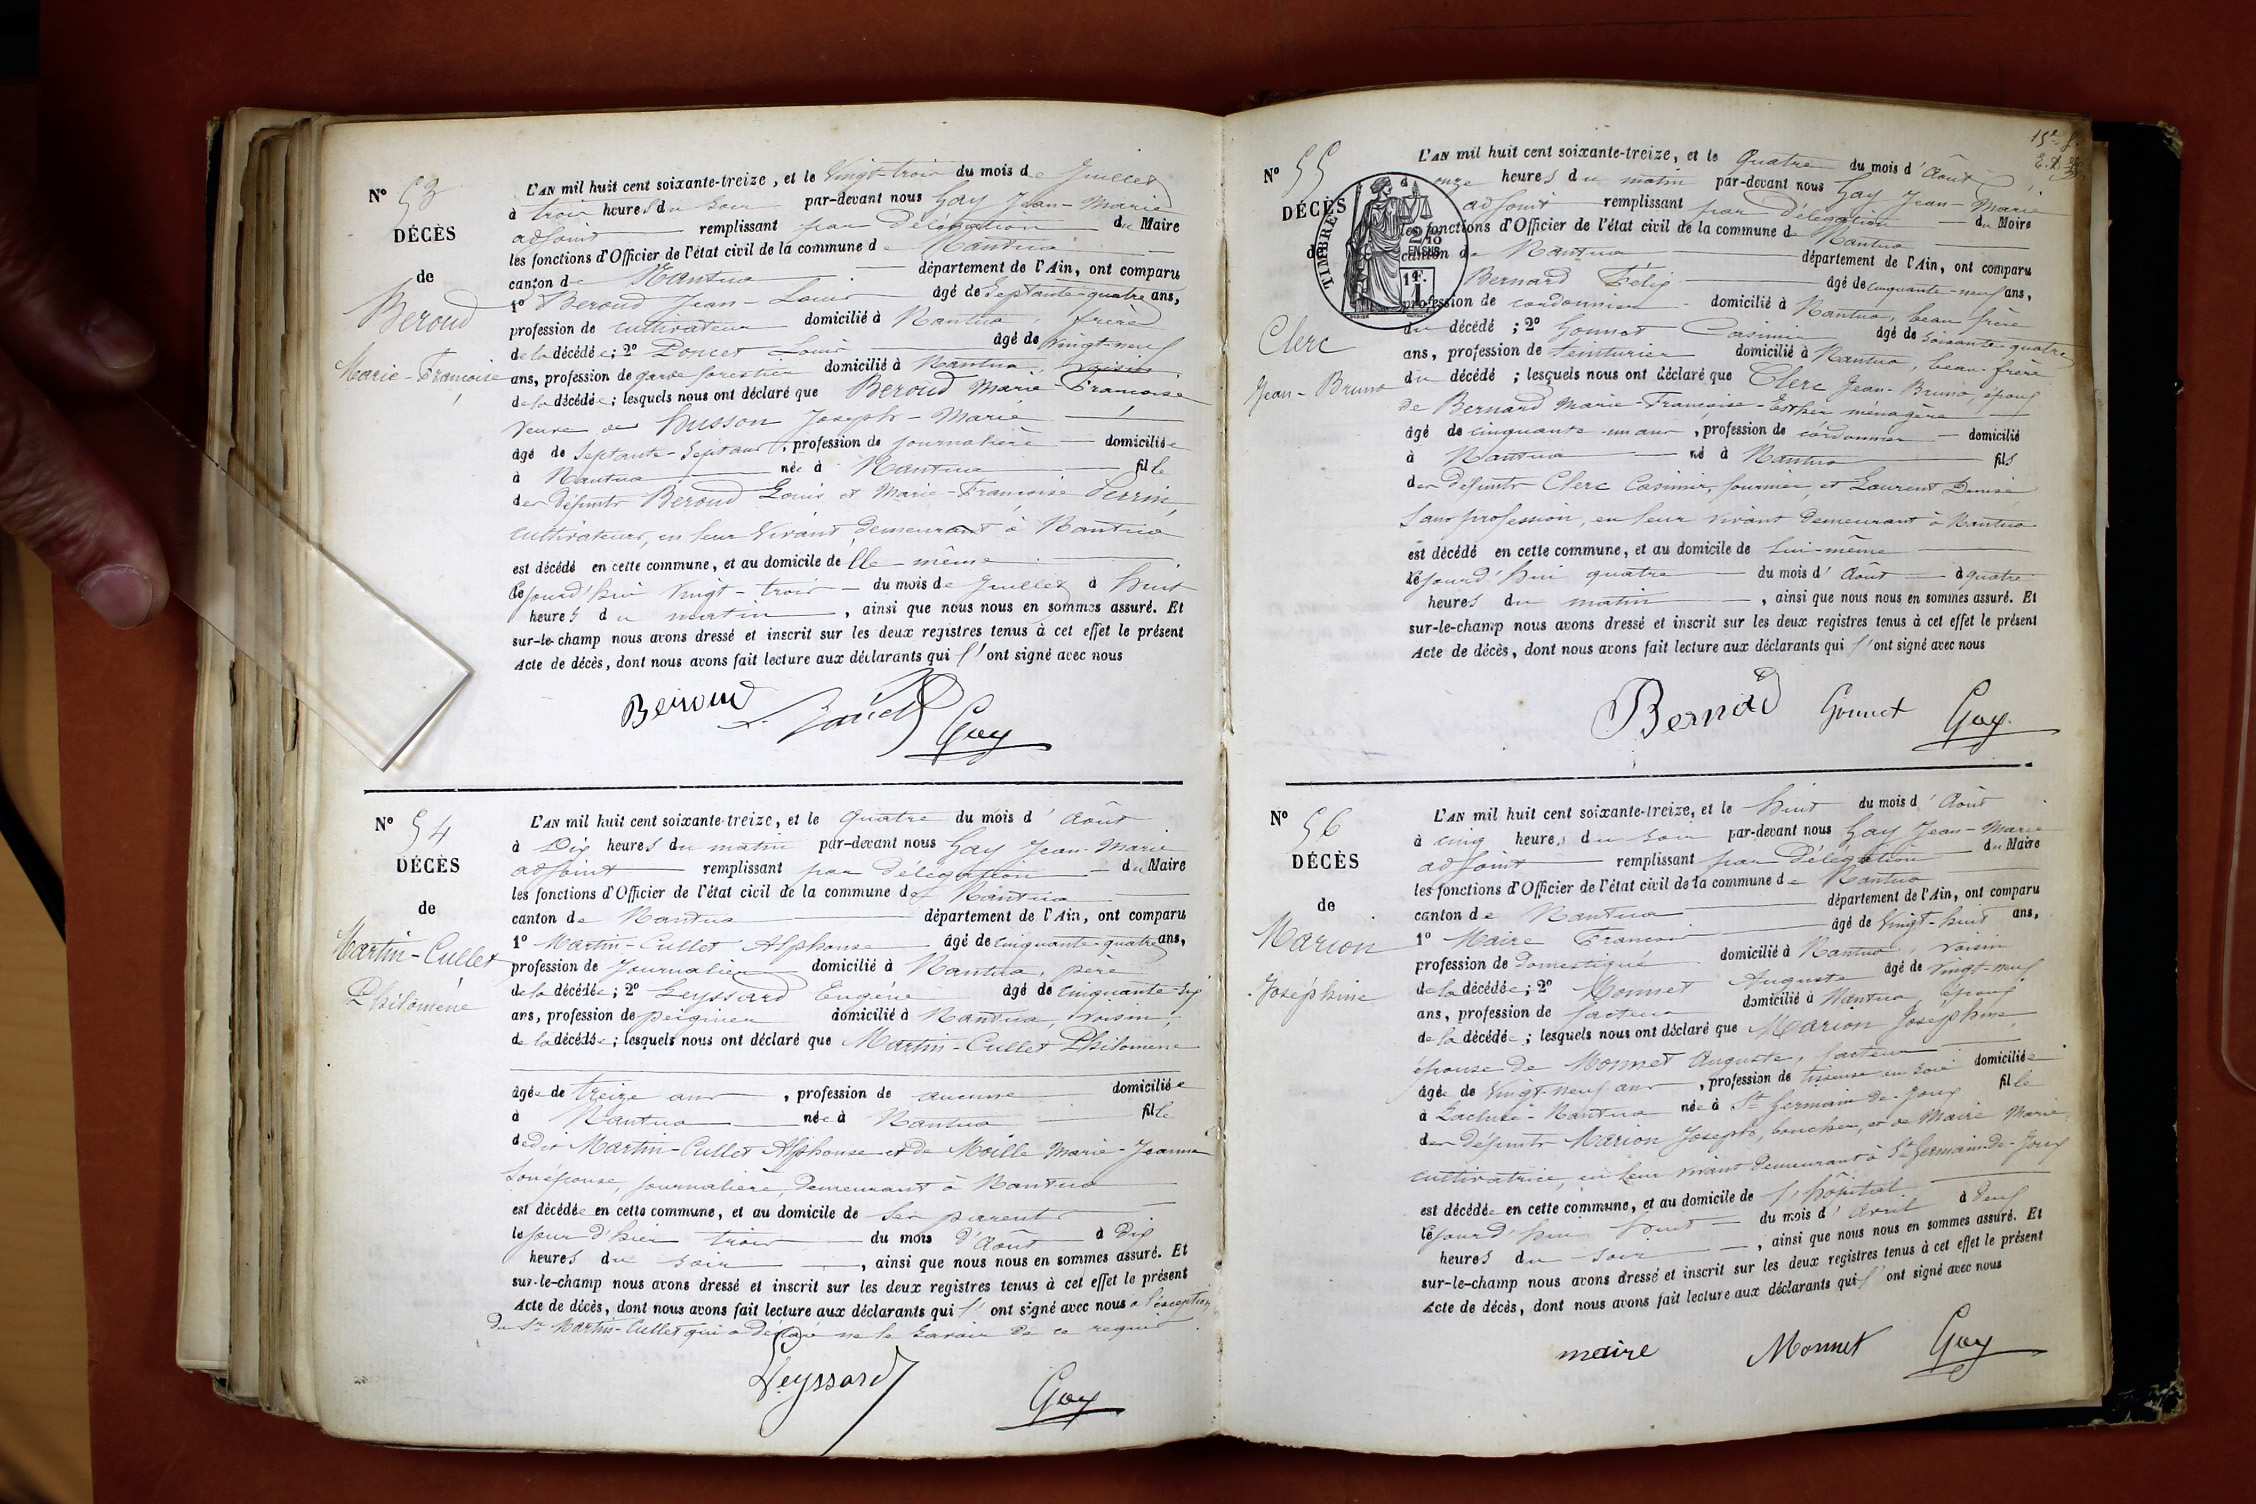 N° 53
DÉCÈS
de
Beroud
Marie-Françoise
L'AN mil huit cent soixante-treize, et le Vingt-trois du mois de Juillet
à trois heures du soir par-devant nous Gay Jean-Marie
adjoint remplissant par délégation du Maire
les fonctions d'Officier de l'état civil de la commune de Nantua
canton de Nantua département de l'Ain, ont comparu
1° Beroud Jean-Louis âgé de Septante-quatre ans,
profession de cultivateur domicilié à Nantua, frère
de la décédée; 2° Poncet Louis âgé de Vingt-neuf
ans, profession de garde forestier domicilié à Nantua, voisin
de la décédée; lesquels nous ont déclaré que Beroud Marie-Françoise
Veuve de Husson Joseph-Marie
âgé de Septante-Sept ans, profession de journalière domiciliée
à Nantua née à Nantua fille
des défunts Beroud Louis et Marie-Françoise Perrin,
cultivateurs, en leur vivant demeurant à Nantua
est décédé en cette commune, et au domicile de Elle même
le jourd'hui Vingt-trois du mois de Juillet à huit
heures du matin, ainsi que nous nous en sommes assuré. Et
sur-le-champ nous avons dressé et inscrit sur les deux registres tenus à cet effet le présent
Acte de décès, dont nous avons fait lecture aux déclarants qui l'ont signé avec nous
Beroud Gay
N° 54
DÉCÈS
de
Martin-Cullet
Philomène
L'AN mil huit cent soixante-treize, et le quatre du mois d'Août
à Dix heures du matin par-devant nous Gay Jean-Marie
adjoint remplissant par délégation du Maire
les fonctions d'Officier de l'état civil de la commune de Nantua
canton de Nantua département de l'Ain, ont comparu
1° Martin-Cullet Alphonse âgé de cinquante-quatre ans,
profession de Journalier domicilié à Nantua, père
de la décédée; 2° Leyssard Eugène âgé de cinquante-six
ans, profession de peignier domicilié à Nantua, voisin,
de la décédée; lesquels nous ont déclaré que Martin-Cullet Philomène
âgée de treize ans, profession de aucune domiciliée
à Nantua née à Nantua fille
dedit Martin-Cullet Alphonse et de Moille Marie-Jeanne
son épouse, journalière, demeurant à Nantua
est décédée en cette commune, et au domicile de ses parents
le jour d'hier trois du mois d'Août à Dix
heures du soir, ainsi que nous nous en sommes assuré. Et
sur-le-champ nous avons dressé et inscrit sur les deux registres tenus à cet effet le présent
Acte de décès, dont nous avons fait lecture aux déclarants qui l'ont signé avec nous a l'exception
du Sr Martin-Cullet qui a déclaré ne le savoir de ce requis
Leyssard Gay
15e f.
N° 55
DÉCÈS
de
Clerc
Jean-Bruno
TIMBRE
2/10
EN SUS
1 F.
L'AN mil huit cent soixante-treize, et le Quatre du mois d'Août
à onze heures du matin par-devant nous Gay Jean-Marie
adjoint remplissant par délégation du Maire
les fonctions d'Officier de l'état civil de la commune de Nantua
canton de Nantua département de l'Ain, ont comparu
Bernard Félix âgé de cinquante-neuf ans,
profession de cordonnier domicilié à Nantua, beau frère
du décédé; 2° Gonnet Casimir âgé de soixante-quatre
ans, profession de teinturier domicilié à Nantua, beau-frère
du décédé; lesquels nous ont déclaré que Clerc Jean-Bruno, époux
de Bernard Marie-Françoise-Esther ménagère
âgé de cinquante-un ans, profession de cordonnier domicilié
à Nantua né à Nantua fils
des défunts Clerc Casimir, fournier, et Laurent Denise
sans profession, en leur vivant demeurant à Nantua
est décédé en cette commune, et au domicile de lui-même
le jourd'hui quatre du mois d'Août à quatre
heures du matin, ainsi que nous nous en sommes assuré. Et
sur-le-champ nous avons dressé et inscrit sur les deux registres tenus à cet effet le présent
Acte de décès, dont nous avons fait lecture aux déclarants qui l'ont signé avec nous
Bernard Gonnet Gay
N° 56
DÉCÈS
de
Marion
Joséphine
L'AN mil huit cent soixante-treize, et le huit du mois d'Août
à cinq heures du soir par-devant nous Gay Jean-Marie
adjoint remplissant par délégation du Maire
les fonctions d'Officier de l'état civil de la commune de Nantua
canton de Nantua département de l'Ain, ont comparu
1° Maire François âgé de Vingt-huit ans,
profession de Domestique domicilié à Nantua, voisin
de la décédée; 2° Monnet Auguste âgé de Vingt-neuf
ans, profession de facteur domicilié à Nantua, époux
de la décédée; lesquels nous ont déclaré que Marion Joséphine,
épouse de Monnet Auguste, facteur
âgée de Vingt-neuf ans, profession de tisseuse en soie domiciliée
à Lacluse-Nantua née à St Germain-de-Joux fille
des défunts Marion Joseph, boucher, et de Maire Marie,
cultivatrice, en leur vivant demeurant à St Germain-de-Joux
est décédée en cette commune, et au domicile de l'hôpital
le jourd'hui huit du mois d'Avril à Deux
heures du soir, ainsi que nous nous en sommes assuré. Et
sur-le-champ nous avons dressé et inscrit sur les deux registres tenus à cet effet le présent
Acte de décès, dont nous avons fait lecture aux déclarants qui l'ont signé avec nous
maire Monnet Gay